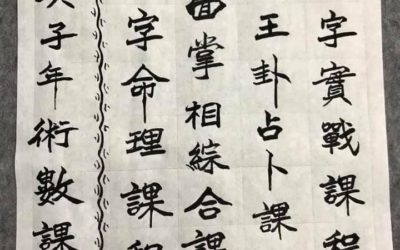 字實戰課程
王卦占卜課
面掌相綜合課
字命理課程
子年術數課